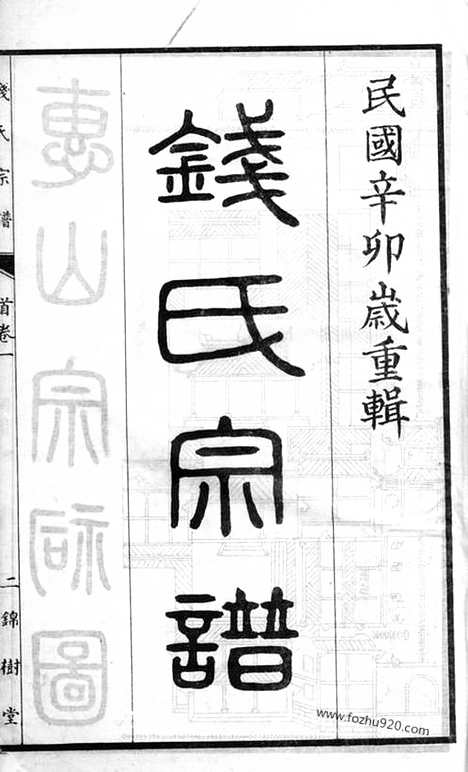 民國辛卯歲重輯
錢氏宗譜
惠山宗祠圖
錢氏宗譜 首卷一 二 錦樹堂
www.fozhu920.com